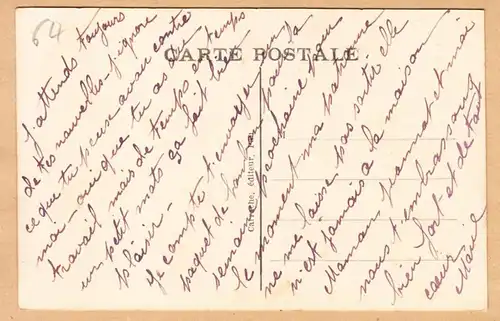 64
CARTE POSTALE
Carrère, éditeur,
J'attends toujours
de tes nouvelles - j'ignore
ce que tu peux avoir contre
moi - ou que tu as du
travail, mais de temps en temps
un petit mots ça fait bien
plaisir -
Je compte t'envoyer un
paquet de pour la
semaine prochaine, pour
le moment ma patronne
ne me laisse pas sortir elle
n'est jamais à la maison
Maman, et moi
nous t'embrassons
bien fort et de tout
cœur
Marie